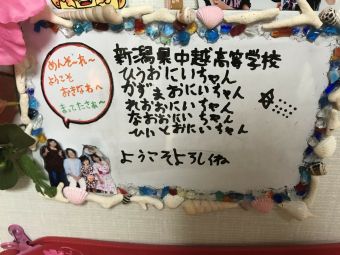 めんそ～れ～
ようこそ
おきなわへ
まってたさぁ～
新潟県中越高等学校
ひろおにいちゃん
かずまおにいちゃん
れおおにいちゃん
なおおにいちゃん
ひいとおにいちゃん
ようこそよろしくね